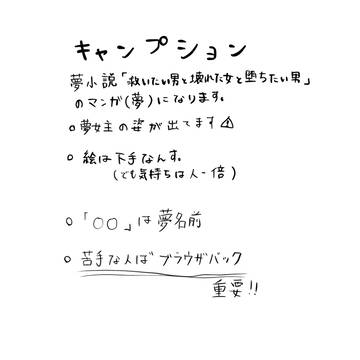 キャンプション
夢小説「救いたい男と壊れた女と堕ちたい男」
のマンガ(夢)になります。
○夢女主の姿が出てます⚠
○ 絵は下手なんす。
(でも気持ちは人一倍)
○「○○」は夢名前
○ 苦手な人ばブラウザバック
重要!!